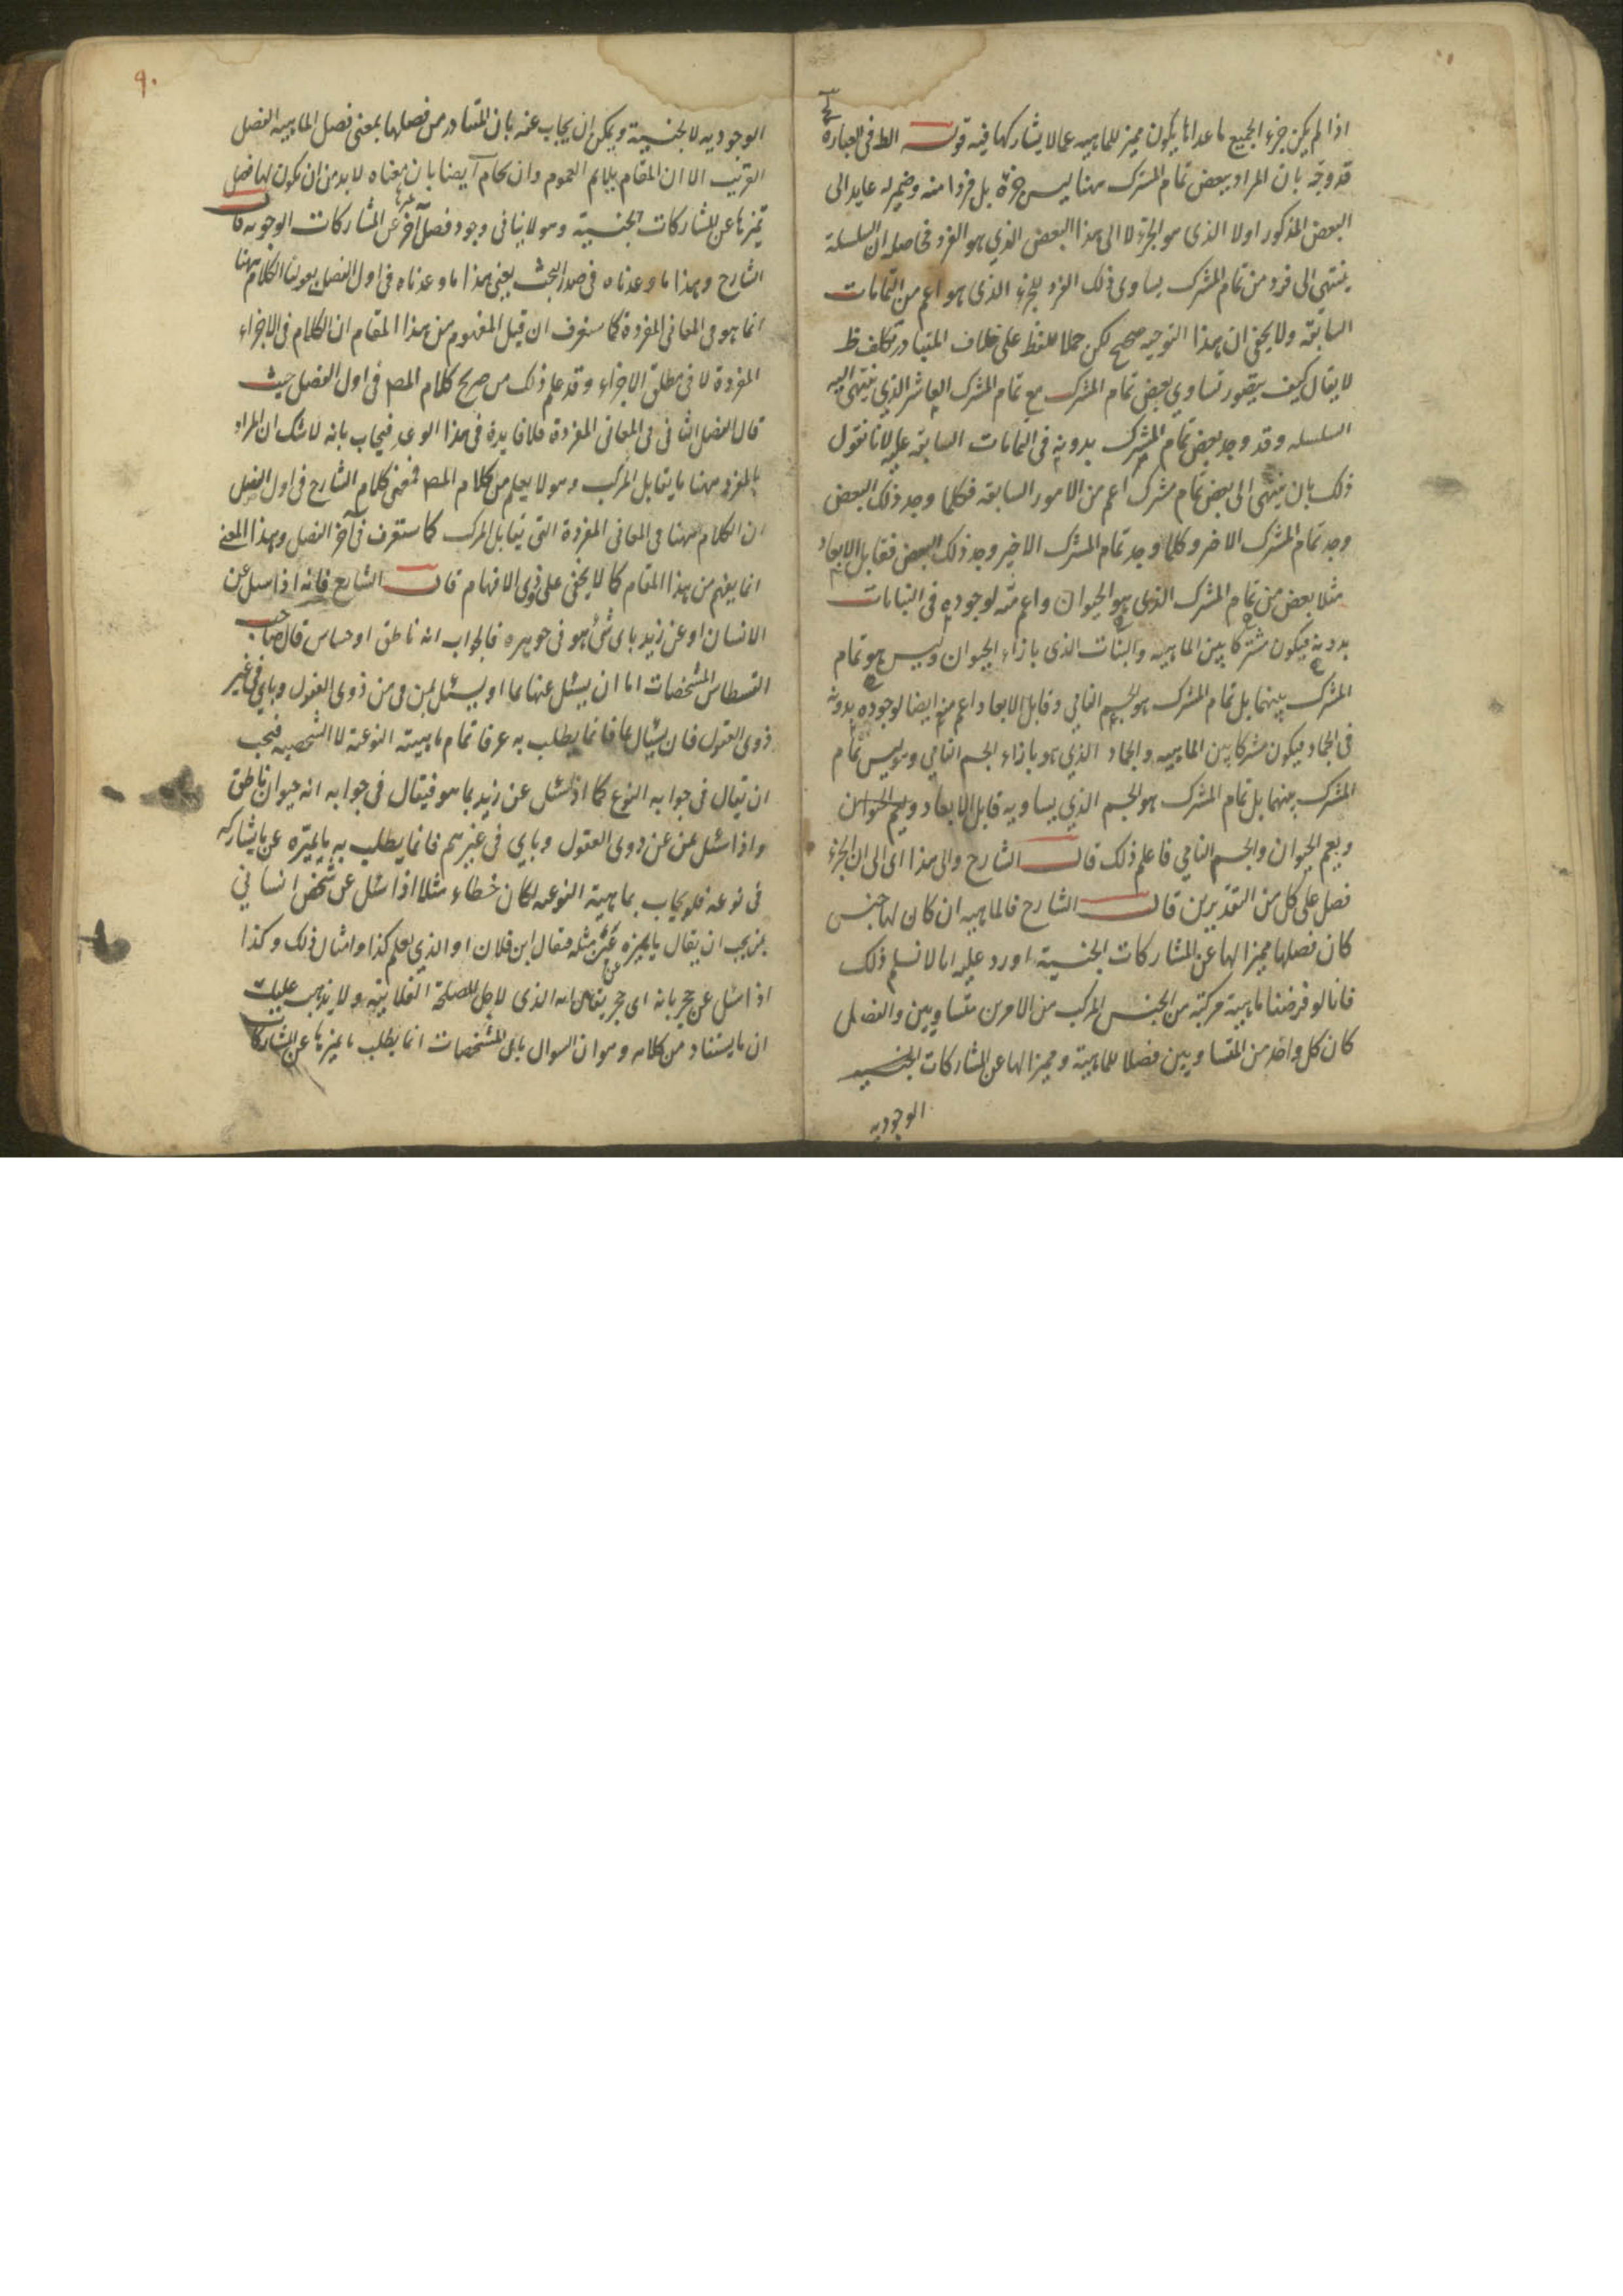 اذا لم يكن جزء الجميع ما عداها يكون مميز للماهيه عما لا يشاركها فيه قوله الظ فى العبارة
قد وجّه بان المراد ببعض تمام المشترك ههنا ليس جزءه بل فردا منه وضمير له عايد الى
البعض المذكور اولا الذى هو الجزء لا الى هذا البعض الذي هو الفرد فحاصله ان السلسلة
ينتهى الى فرد من تمام المشترك يساوى ذلك الفرد للجزء الذى هو اعم من التمامات
السابقة ولا يخفى ان هذا التوجيه صحيح لكن حملا للفظ على خلاف المتبادر تكلف ظ
لا يقال كيف يتصور تساوي بعض تمام المشترك مع تمام المشترك العاشر الذي ينتهى اليه
السلسله وقد وجد بعض تمام المشترك بدونه فى التمامات السابقة عليه لانا نقول
ذلك بان ينتهى الى بعض تمام مشترك اعم من الامور السابقه فكلما وجد ذلك البعض
وجد تمام المشترك الاخر وكلما وجد تمام المشترك الاخير وجد ذلك البعض فقابل الابعاد
مثلا بعض من تمام المشترك الذي هو الحيوان واعم منه لوجوده فى النباتات
بدونه فيكون مشتركا بين الماهيه والنبات الذى بازاء الحيوان وليس هو تمام
المشترك بينهما بل تمام المشترك هو الجسم النامي وقابل الابعاد اعم منه ايضا لوجوده بدونه
فى الجماد فيكون مشتركا بين الماهيه والجماد الذي هو بازاء الجسم النامي وهو ليس تمام
المشترك بينهما بل تمام المشترك هو الجسم الذي يساويه قابل الابعاد ويعم الحيوان
ويعم الحيوان والجسم النامي فاعلم ذلك قال الشارح والى هذا اى الى ان الجزء
فصل على كل من التقديرين قال الشارح فالماهيه ان كان لها جنس
كان فصلها مميزا لها عن المشاركات الجنسية اورد عليه انا لا نسلم ذلك
فانا لو فرضنا ماهية مركبة من الجنس المركب من الامرين متساويين والفصل
كان كل واحد من المتساويين فصلا للماهية ومميزا لها عن المشاركات الجنسيه
الوجوديه
٩٠
الوجوديه لا الجنسية ويمكن ان يجاب عنه بان المتبادر من فصلها بمعنى فصل الماهيه الفصل
القريب الا ان المقام يلايم العموم وان يجاب ايضا بان معناه لا بد من ان يكون لها فصل
تميزها عن المشاركات الجنسية وهو لا ينافى وجود فصل آخر عن المشاركات الوجوديه قال
الشارح وهذا ما وعدناه فى صدر البحث يعنى هذا ما وعدناه فى اول الفصل بقولنا الكلام ههنا
انما هو فى المعانى المفردة كما ستعرف ان قيل المفهوم من هذا المقام ان الكلام فى الاجزاء
المفردة لا فى مطلق الاجزاء وقد علم ذلك من صريح كلام المص فى اول الفصل حيث
قال الفصل الثانى فى المعانى المفردة فلا فايدة فى هذا الوعد فيجاب بانه لا شك ان المراد
بالمفرد ههنا ما يقابل المركب وهو لا يعلم من كلام المص فمعنى كلام الشارح فى اول الفصل
ان الكلام ههنا فى المعانى المفردة التى يقابل المركب كما ستعرف فى آخر الفصل وبهذا المعنى
انما يفهم من هذا المقام كما لا يخفى على ذوى الافهام قال الشارح فانه اذا سئل عن
الانسان او عن زيد باى شئ هو فى جوهره فالجواب انه ناطق او حساس قال صاحب
القسطاس المشخصات اما ان يسئل عنها بما او يسئل بمن فى من ذوى العقول وباى فى غير
ذوى العقول فان يسأل بما فانما يطلب به عرفا تمام ماهيته النوعية لا الشخصيه فيجب
ان يقال فى جوابه النوع كما اذا سئل عن زيد بما هو فيقال فى جوابه انه حيوان ناطق
واذا سئل بمن عن ذوى العقول وباى فى غيرهم فانما يطلب به ما يميزه عن ما يشاركه
فى نوعه فلو يجاب بماهية النوعه لكان خطاء مثلا اذا سئل عن شخص انسانى
بمن يجب ان يقال ما يميزه عن مثله فيقال ابن فلان او الذي يعلم كذا وامثال ذلك وكذا
اذا سئل عن حجر بانه اى حجر يقال انه الذى لاجل المصلحة الفلانيه ولا يذهب عليك
ان ما يستفاد من كلامه وهو ان السوال باى المشخصات انما يطلب ما يميزها عن المشاركات